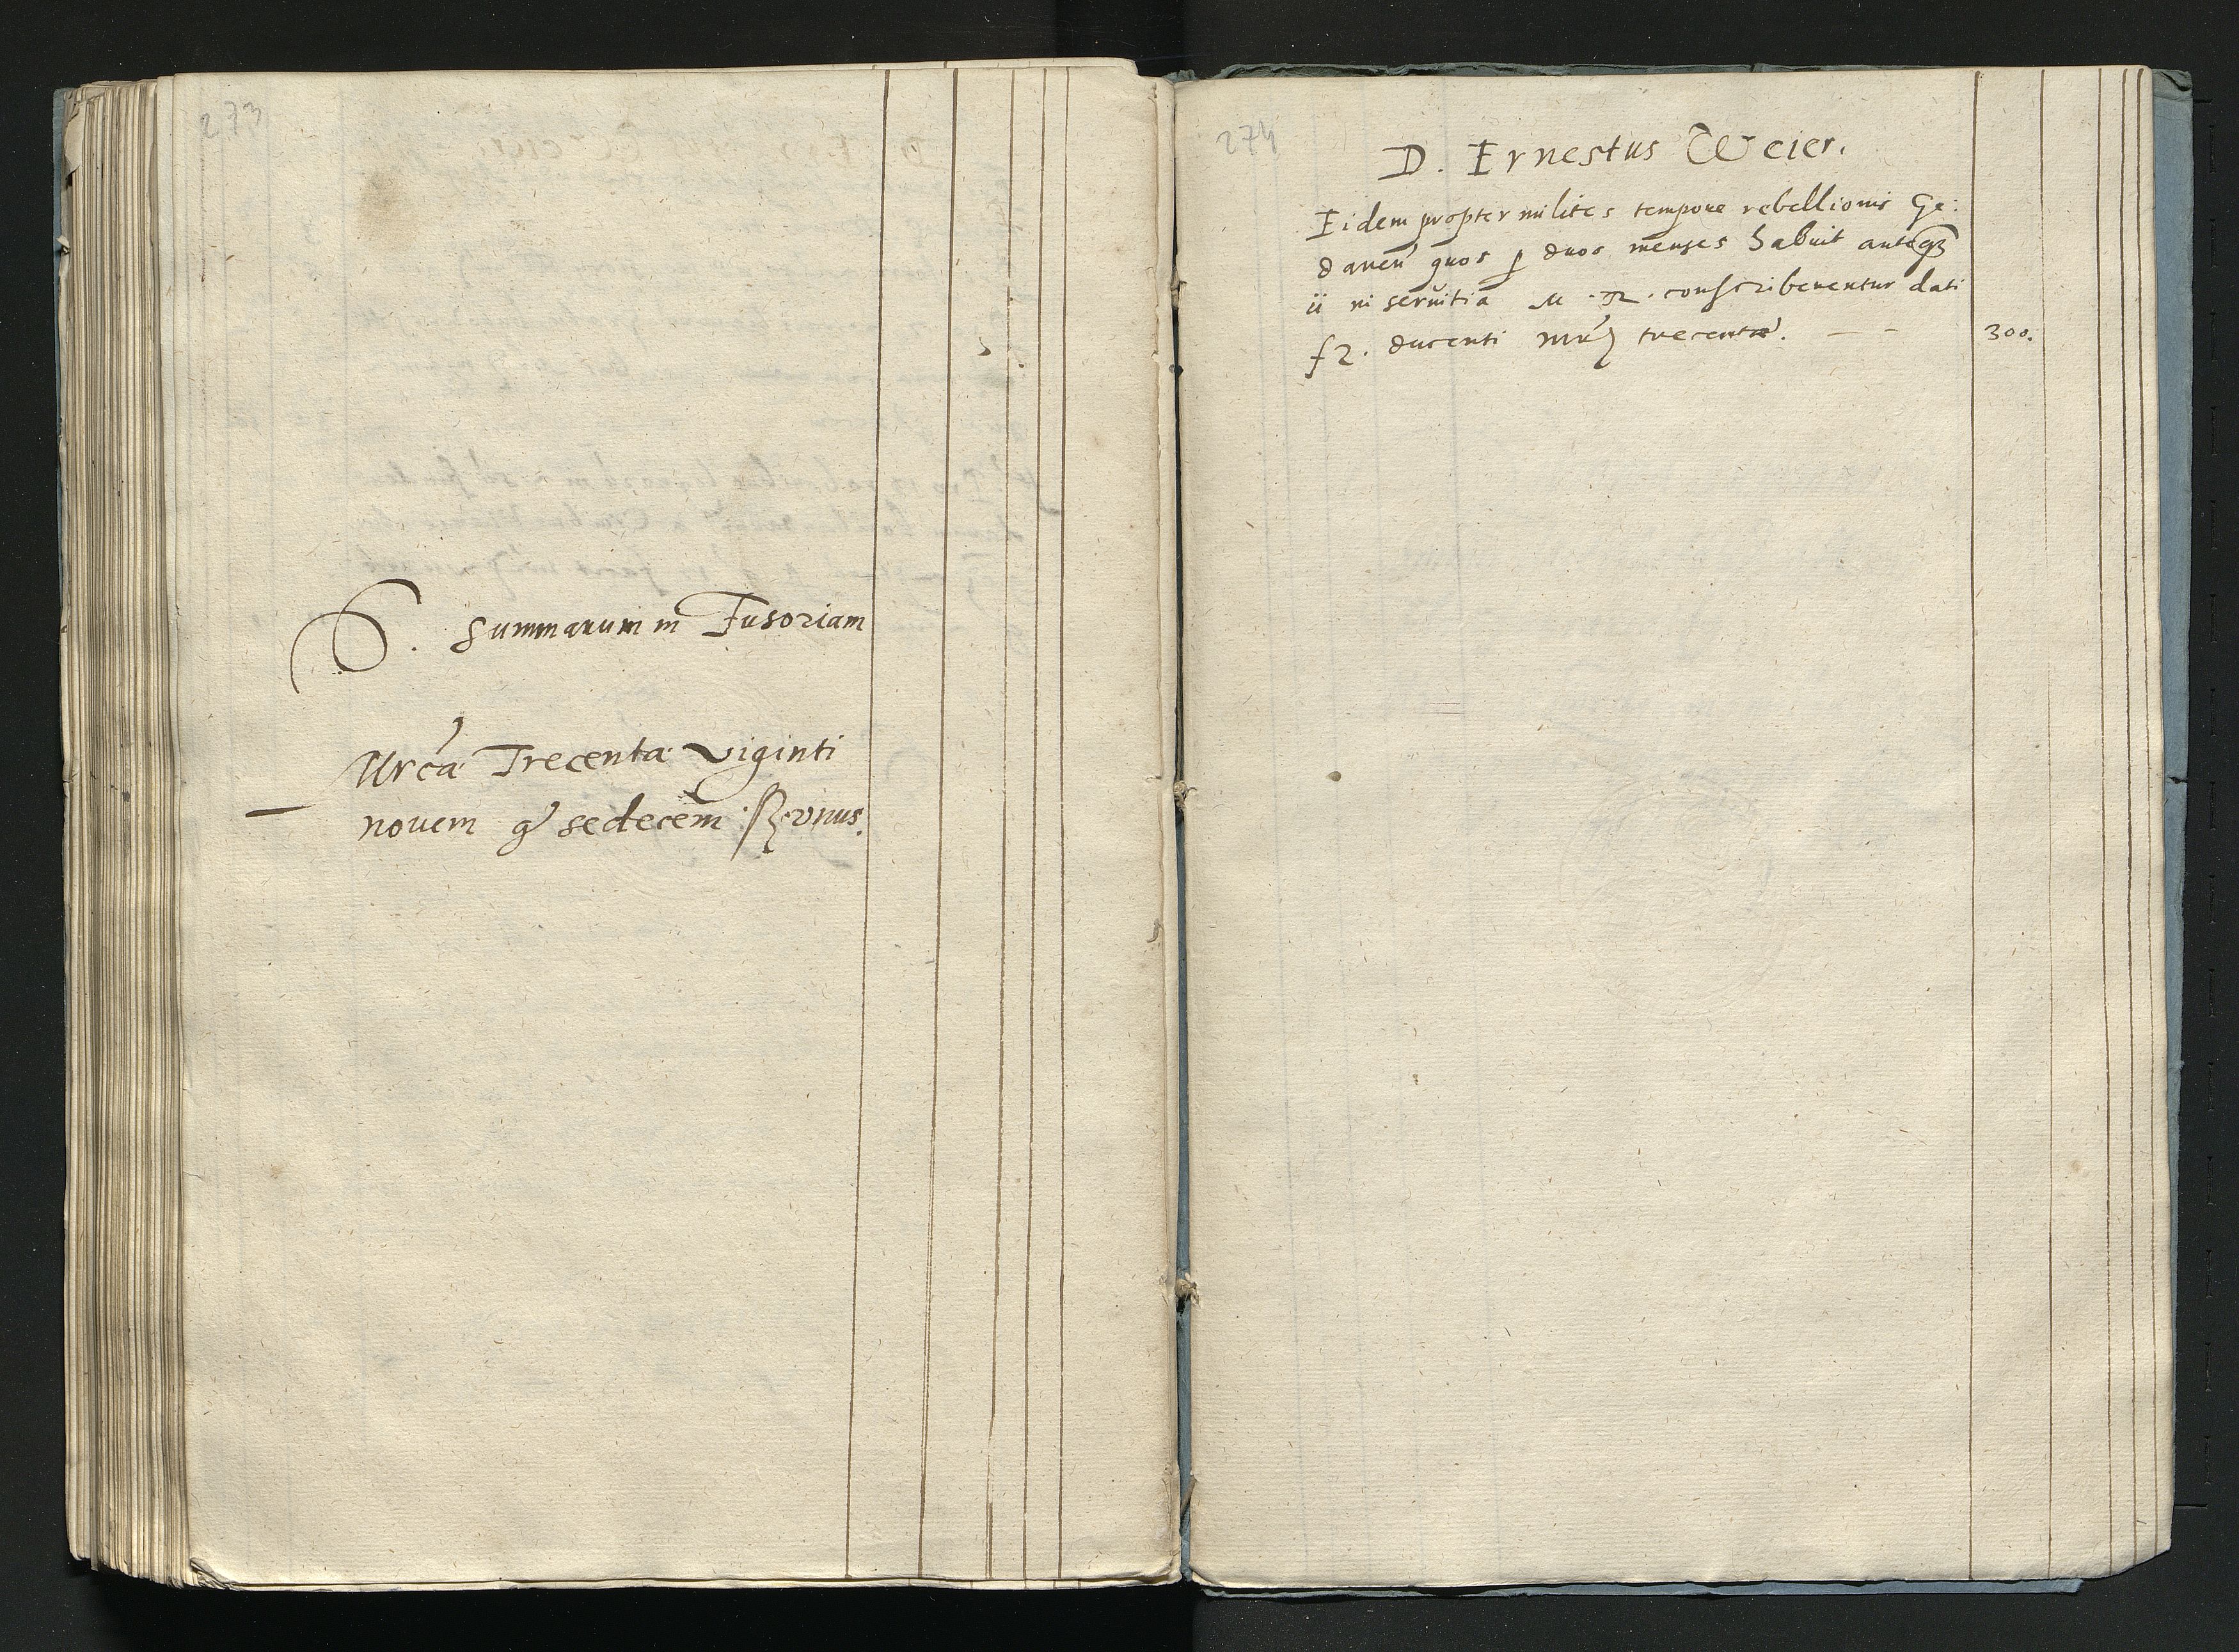 273
S. Summarum in Fusoriam
Mrca Trecenta viginti
novem g sedecem unus.
274
D. Ernestus Weier.
Eidem propter milites tempore rebellionis Ge:
danen quos p duos menses habuit anteq3
ii in servitia M. R. conscriberentur dati
fl. ducenti mrc trecente. — - 300.